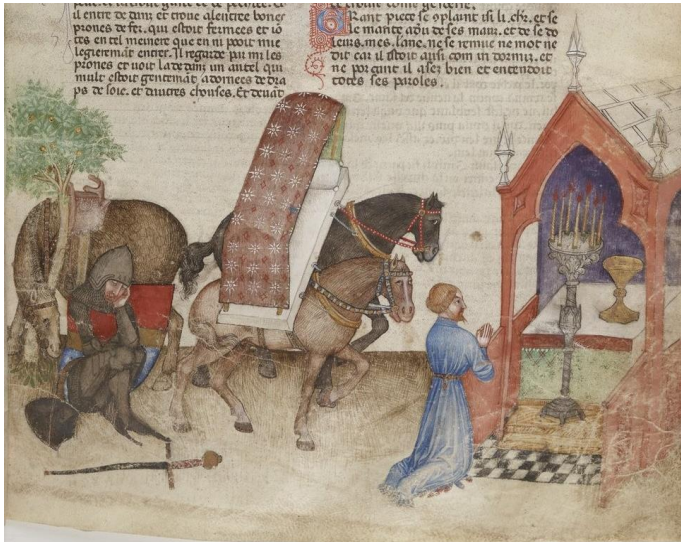 il entre de danz et troue alentree bones
prones de fer. qui estoit fermees et io
tes en tel meniere que en ni pooit mie
legierem̃t entrer. Il regarde par mi les
prones et voit la dedanz un autel qui
mult estoit gentem̃t adornees de dra
ps de soie. et dautres chouses. Et deuãt
GRant piece se oplaint isi li. chr. et se
le mante aou de ses maus. et de se do
leurs. mes. lanc. ne se remue ne mot ne
dit car il estoit ausi com in dormir. et
ne por cant il asez bien et entendoit
totes ses paroles.